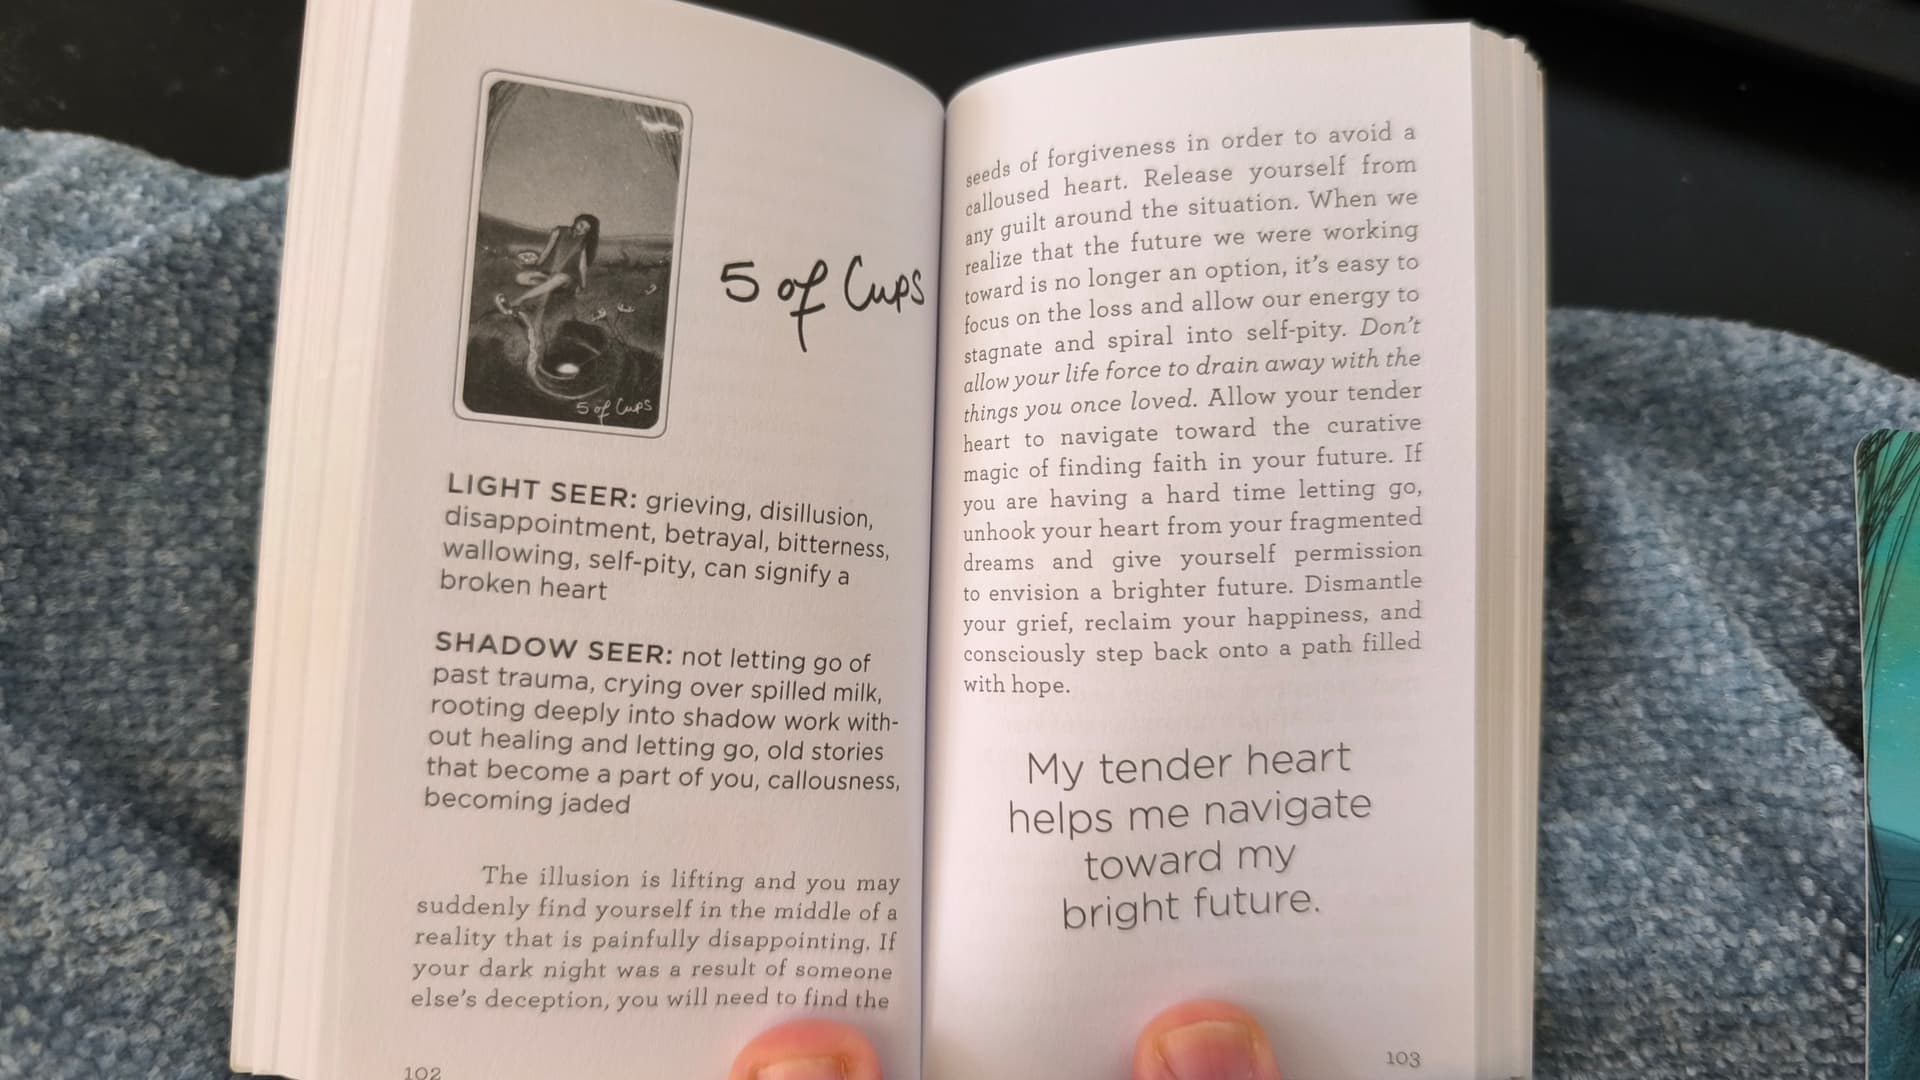 5 of Cups
5 of Cups
LIGHT SEER: grieving, disillusion,
disappointment, betrayal, bitterness,
wallowing, self-pity, can signify a
broken heart
SHADOW SEER: not letting go of
past trauma, crying over spilled milk,
rooting deeply into shadow work with-
out healing and letting go, old stories
that become a part of you, callousness,
becoming jaded
The illusion is lifting and you may
suddenly find yourself in the middle of a
reality that is painfully disappointing. If
your dark night was a result of someone
else's deception, you will need to find the
102
seeds of forgiveness in order to avoid a
calloused heart. Release yourself from
any guilt around the situation. When we
realize that the future we were working
toward is no longer an option, it's easy to
focus on the loss and allow our energy to
stagnate and spiral into self-pity. Don't
allow your life force to drain away with the
things you once loved. Allow your tender
heart to navigate toward the curative
magic of finding faith in your future. If
you are having a hard time letting go,
unhook your heart from your fragmented
dreams and give yourself permission
to envision a brighter future. Dismantle
your grief, reclaim your happiness, and
consciously step back onto a path filled
with hope.
My tender heart
helps me navigate
toward my
bright future.
103